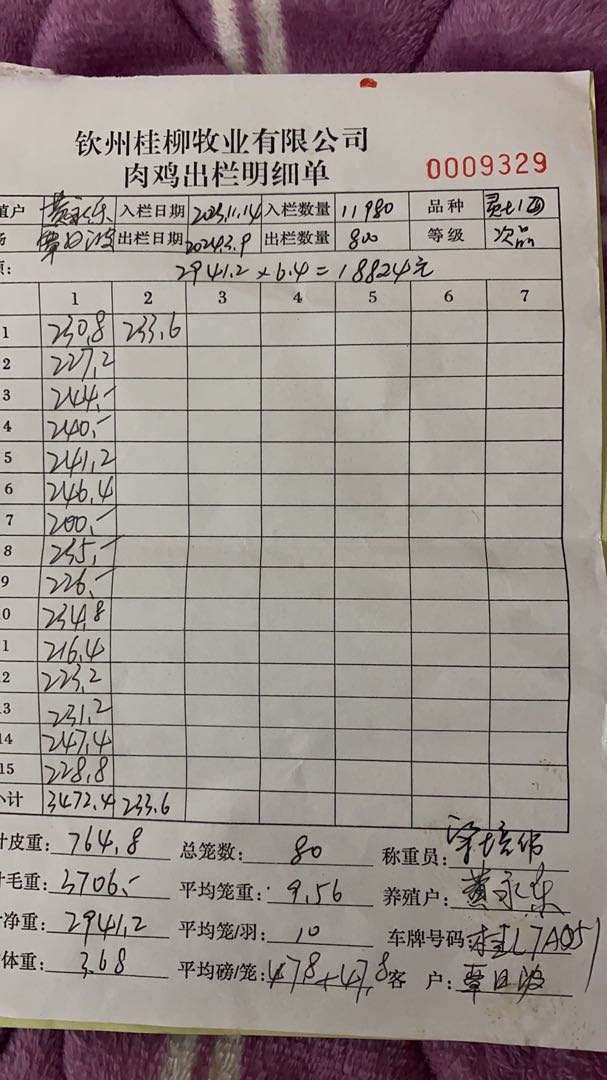 钦州桂柳牧业有限公司
肉鸡出栏明细单
0009329
殖户 黄永东 入栏日期 2023.11.14 入栏数量 11980 品种
覃日波 出栏日期 2024.3.9 出栏数量 800 等级 次品
2941.2×6.4=18824元
1 2 3 4 5 6 7
1 230.8 233.6
2 227.2
3 244.-
4 240.-
5 241.2
6 246.4
7 200.-
8 235.-
9 226.-
0 234.8
1 216.4
2 223.2
3 231.2
14 247.4
15 228.8
小计 3472.4 233.6
计皮重: 764.8 总笼数: 80 称重员:
计毛重: 3706.- 平均笼重: 9.56 养殖户: 黄永东
净重: 2941.2 平均笼/羽: 10 车牌号码 桂L7A051
体重: 3.68 平均磅/笼: 478+47.8 客 户: 覃日波